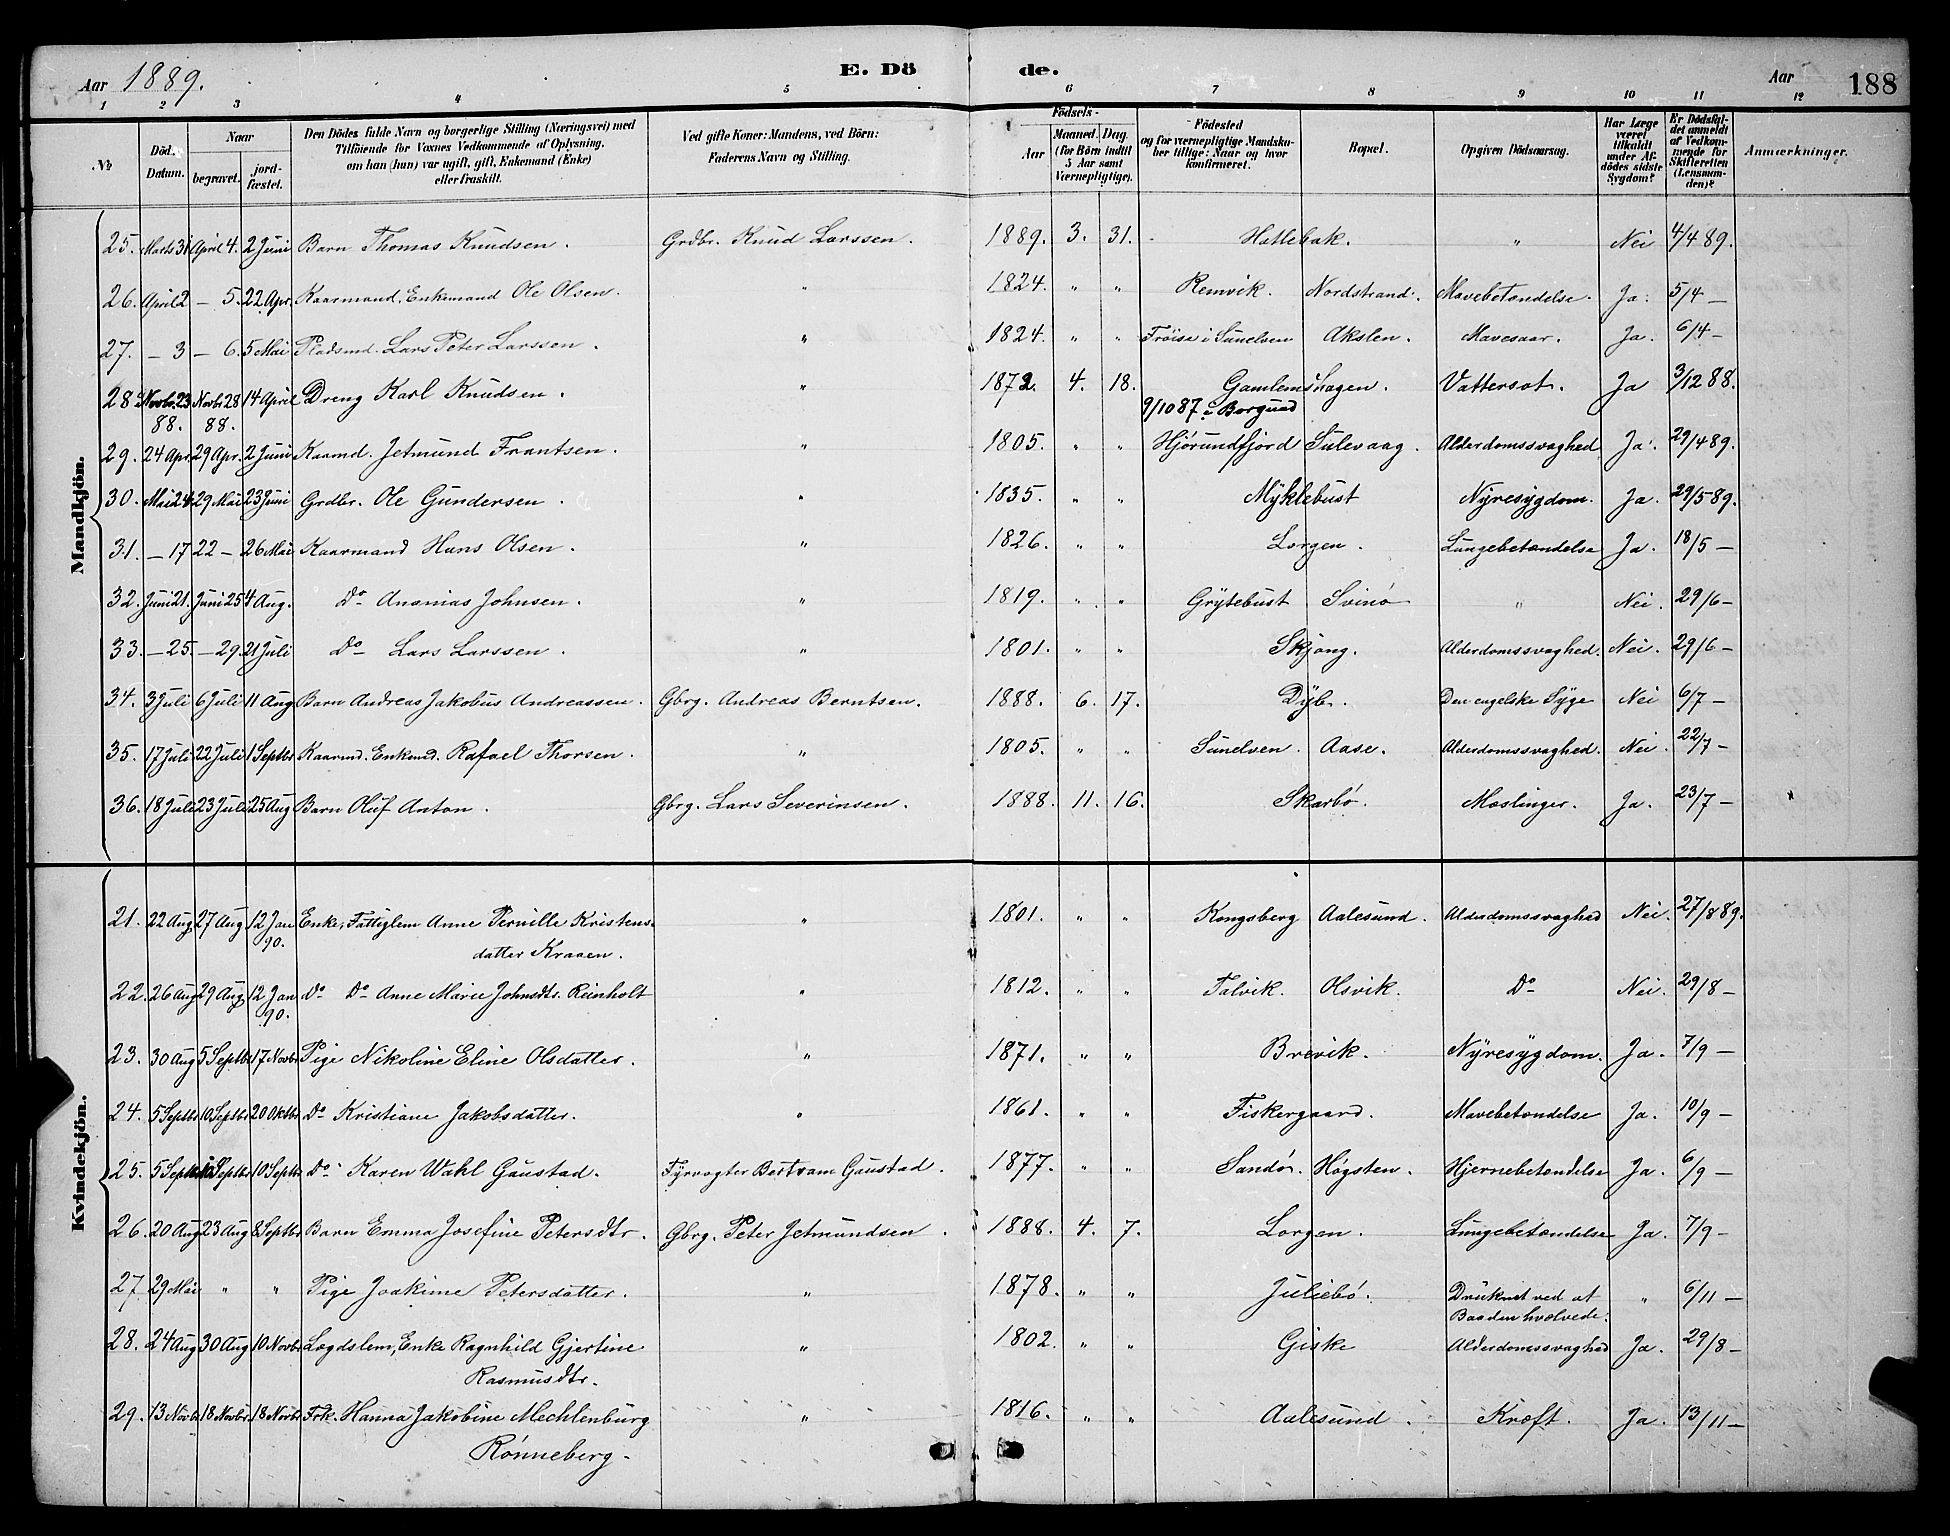 Aar 1889. E. Dö de. Aar 188
1 2 3 4 5 6 7 8 9 10 11 12
№
Död. Datum.
Naar
begravet.
jordfæstet.
Den Dödes fulde Navn og borgerlige Stilling (Næringsvei) med
Tilföiende for Voxnes Vedkommende af Oplysning,
om han (hun) var ugift, gift, Enkemand (Enke)
eller fraskilt.
Ved gifte Koner: Mandens, ved Börn:
Faderens Navn og Stilling.
Födsels-
Aar
Maaned. Dag.
(for Börn indtil
5 Aar samt
Værnepligtige).
Födested
og for værnepligtige Mandskaber tillige: Naar og hvor
konfirmeret.
Bopæl.
Opgiven Dödsaarsag.
Har Læge
været
tilkaldt
under Afdödes sidste
Sygdom?
Er Dödsfaldet anmeldt
af Vedkommende for
Skifteretten
(Lensmanden)?
Anmærkninger.
Mandkjön.
25. Marts 31 April 4. 2 Juni Barn Thomas Knudsen. Grdbr. Knud Larssen. 1889. 3. 31. Hatlebak. " Nei 4/4 89.
26. April 2 — 5. 22 Apr. Kaarmand, Enkemand Ole Olsen. " 1824. " " Remvik. Nordstrand. Mavebetændelse. Ja. 5/4 —
27. — 3 — 6. 5 Mai Pladsmd. Lars Peter Larssen. " 1824. " " Frøise i Sunelven Akslen. Mavesaar. Ja. 6/4 —
28. Novbr. 23 88. Novbr 28 88. 14 April Dreng Karl Knudsen. " 1872. 4. 18. Gamlemshagen. Vattersot. Ja 3/12 88.
9/10 87 i Borgund
29. 24 Apr. 29 Apr. 2 Juni Kaarmd. Jetmund Frantsen. " 1805. " " Hjørundfjord Sulevaag. Alderdomssvaghed Ja. 29/4 89.
30. Mai 24 29 Mai 23 Juni Grdbr. Ole Gundersen. " 1835. " " Myklebust Nyresygdom. Ja. 29/5 89.
31. — 17 22 — 26 Mai Kaarmand Hans Olsen. " 1826. " " Lorgen. Lungebetændelse Ja. 18/5 —
32. Juni 21. Juni 25 4 Aug. Do Ananias Johnsen. " 1819. " " Grytebust Svinø " Nei. 29/6 —
33. — 25. — 29. 21 Juli Do Lars Larssen. " 1801. " " Skjong. Alderdomssvaghed. Nei. 29/6 —
34. 3 Juli 6 Juli 11 Aug Barn Andreas Jakobus Andreassen. Gbrg. Andreas Berntsen. 1888. 6. 17. Dyb. Den engelske Syge Nei 6/7 —
35. 17 Juli 22 Juli 1 Septbr Kaarmd. Enkemd. Rafael Thorsen. " 1805. " " Sunelven. Aase. Alderdomssvaghed. Nei. 22/7 —
36. 18 Juli 23 Juli 25 Aug Barn Oluf Anton. Gbrg. Lars Severinsen. 1888. 11. 16. Skarbø. Mæslinger. Ja. 23/7 —
Kvindekjön.
21. 22 Aug 27 Aug 12 Jan 90. Enke, Fattiglem Anne Pernille Kristens- " 1801. " " Kongsberg Aalesund. Alderdomssvaghed Nei. 27/8 89.
datter Kraaen.
22. 26 Aug 29 Aug 12 Jan 90. Do Do Anne Marie Johnsdtr. Reinholt " 1812. " " Talvik. Olsvik. Do Nei. 29/8 —
23. 30 Aug 5 Septbr 17 Novbr Pige Nikoline Eline Olsdatter. " 1871. " " Brevik. Nyresygdom. Ja. 7/9 —
24. 5 Septbr 10 Septbr 20 Oktbr Do Kristiane Jakobsdatter. " 1861. " " Fiskergaard. Mavebetændelse Ja. 10/9 —
25. 5 Septbr Septbr 10 Septbr Do Karen Wahl Gaustad. Fyrvogter Bertram Gaustad. 1877. " " Sandø. Høgsten. Hjernebetændelse Ja. 6/9 —
26. 20 Aug 23 Aug 8 Septbr Barn Emma Josefine Petersdtr. Gbrg. Peter Jetmundsen. 1888. 4. 7. Lorgen. Lungebetændelse Ja. 7/9 —
27. 29 Mai " " Pige Joakime Petersdatter. " 1878. " " Juliebø. Druknet ved at " 6/11 —
Baaden hvælvede.
28. 24 Aug 30 Aug 10 Novbr Lægdslem, Enke Ragnhild Gjertine " 1802. " " Giske Alderdomssvaghed Ja. 29/8 —
Rasmusdtr.
29. 13 Novbr 18 Novbr. 18 Novbr Frk. Hanna Jakobine Mechlenburg " 1816. " " Aalesund. Kræft. Ja. 13/11 —
Rønneberg.